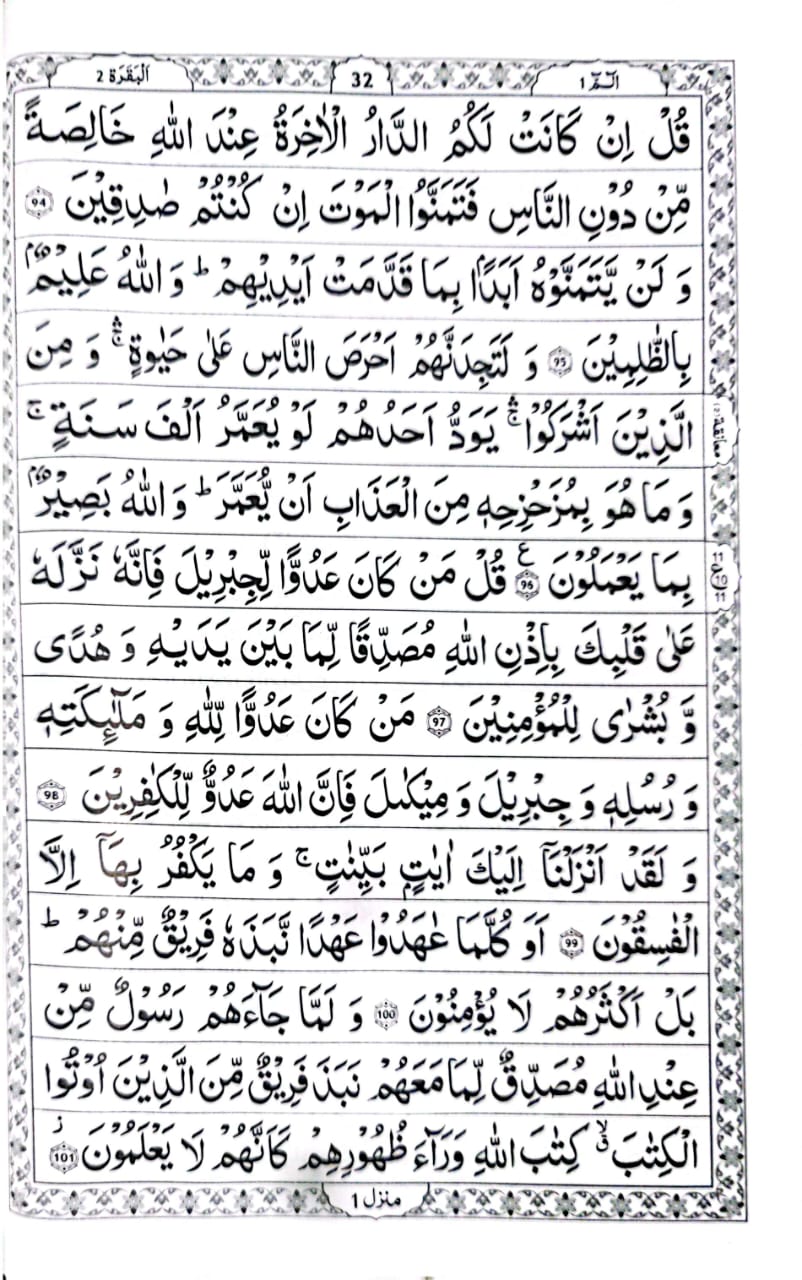 الٓمّٓ 1 32 اَلْبَقَرَة 2
قُلْ اِنْ كَانَتْ لَكُمُ الدَّارُ الْاٰخِرَةُ عِنْدَ اللّٰهِ خَالِصَةً
مِّنْ دُوْنِ النَّاسِ فَتَمَنَّوُا الْمَوْتَ اِنْ كُنْتُمْ صٰدِقِيْنَ 94
وَ لَنْ يَّتَمَنَّوْهُ اَبَدًۢا بِمَا قَدَّمَتْ اَيْدِيْهِمْ ؕ وَ اللّٰهُ عَلِيْمٌۢ
بِالظّٰلِمِيْنَ 95 وَ لَتَجِدَنَّهُمْ اَحْرَصَ النَّاسِ عَلٰى حَيٰوةٍ ۛۚ وَ مِنَ
الَّذِيْنَ اَشْرَكُوْا ۛۚ يَوَدُّ اَحَدُهُمْ لَوْ يُعَمَّرُ اَلْفَ سَنَةٍ ۚ
وَ مَا هُوَ بِمُزَحْزِحِهٖ مِنَ الْعَذَابِ اَنْ يُّعَمَّرَ ؕ وَ اللّٰهُ بَصِيْرٌۢ
بِمَا يَعْمَلُوْنَ 96 ع قُلْ مَنْ كَانَ عَدُوًّا لِّجِبْرِيْلَ فَاِنَّهٗ نَزَّلَهٗ
عَلٰى قَلْبِكَ بِاِذْنِ اللّٰهِ مُصَدِّقًا لِّمَا بَيْنَ يَدَيْهِ وَ هُدًى
وَّ بُشْرٰى لِلْمُؤْمِنِيْنَ 97 مَنْ كَانَ عَدُوًّا لِّلّٰهِ وَ مَلٰٓئِكَتِهٖ
وَ رُسُلِهٖ وَ جِبْرِيْلَ وَ مِيْكٰىلَ فَاِنَّ اللّٰهَ عَدُوٌّ لِّلْكٰفِرِيْنَ 98
وَ لَقَدْ اَنْزَلْنَاۤ اِلَيْكَ اٰيٰتٍۭ بَيِّنٰتٍ ۚ وَ مَا يَكْفُرُ بِهَاۤ اِلَّا
الْفٰسِقُوْنَ 99 اَوَ كُلَّمَا عٰهَدُوْا عَهْدًا نَّبَذَهٗ فَرِيْقٌ مِّنْهُمْ ؕ
بَلْ اَكْثَرُهُمْ لَا يُؤْمِنُوْنَ 100 وَ لَمَّا جَآءَهُمْ رَسُوْلٌ مِّنْ
عِنْدِ اللّٰهِ مُصَدِّقٌ لِّمَا مَعَهُمْ نَبَذَ فَرِيْقٌ مِّنَ الَّذِيْنَ اُوْتُوا
الْكِتٰبَ ۙۗ كِتٰبَ اللّٰهِ وَرَآءَ ظُهُوْرِهِمْ كَاَنَّهُمْ لَا يَعْلَمُوْنَ ؗ 101
معانقة
11
ع 10
11
منزل 1